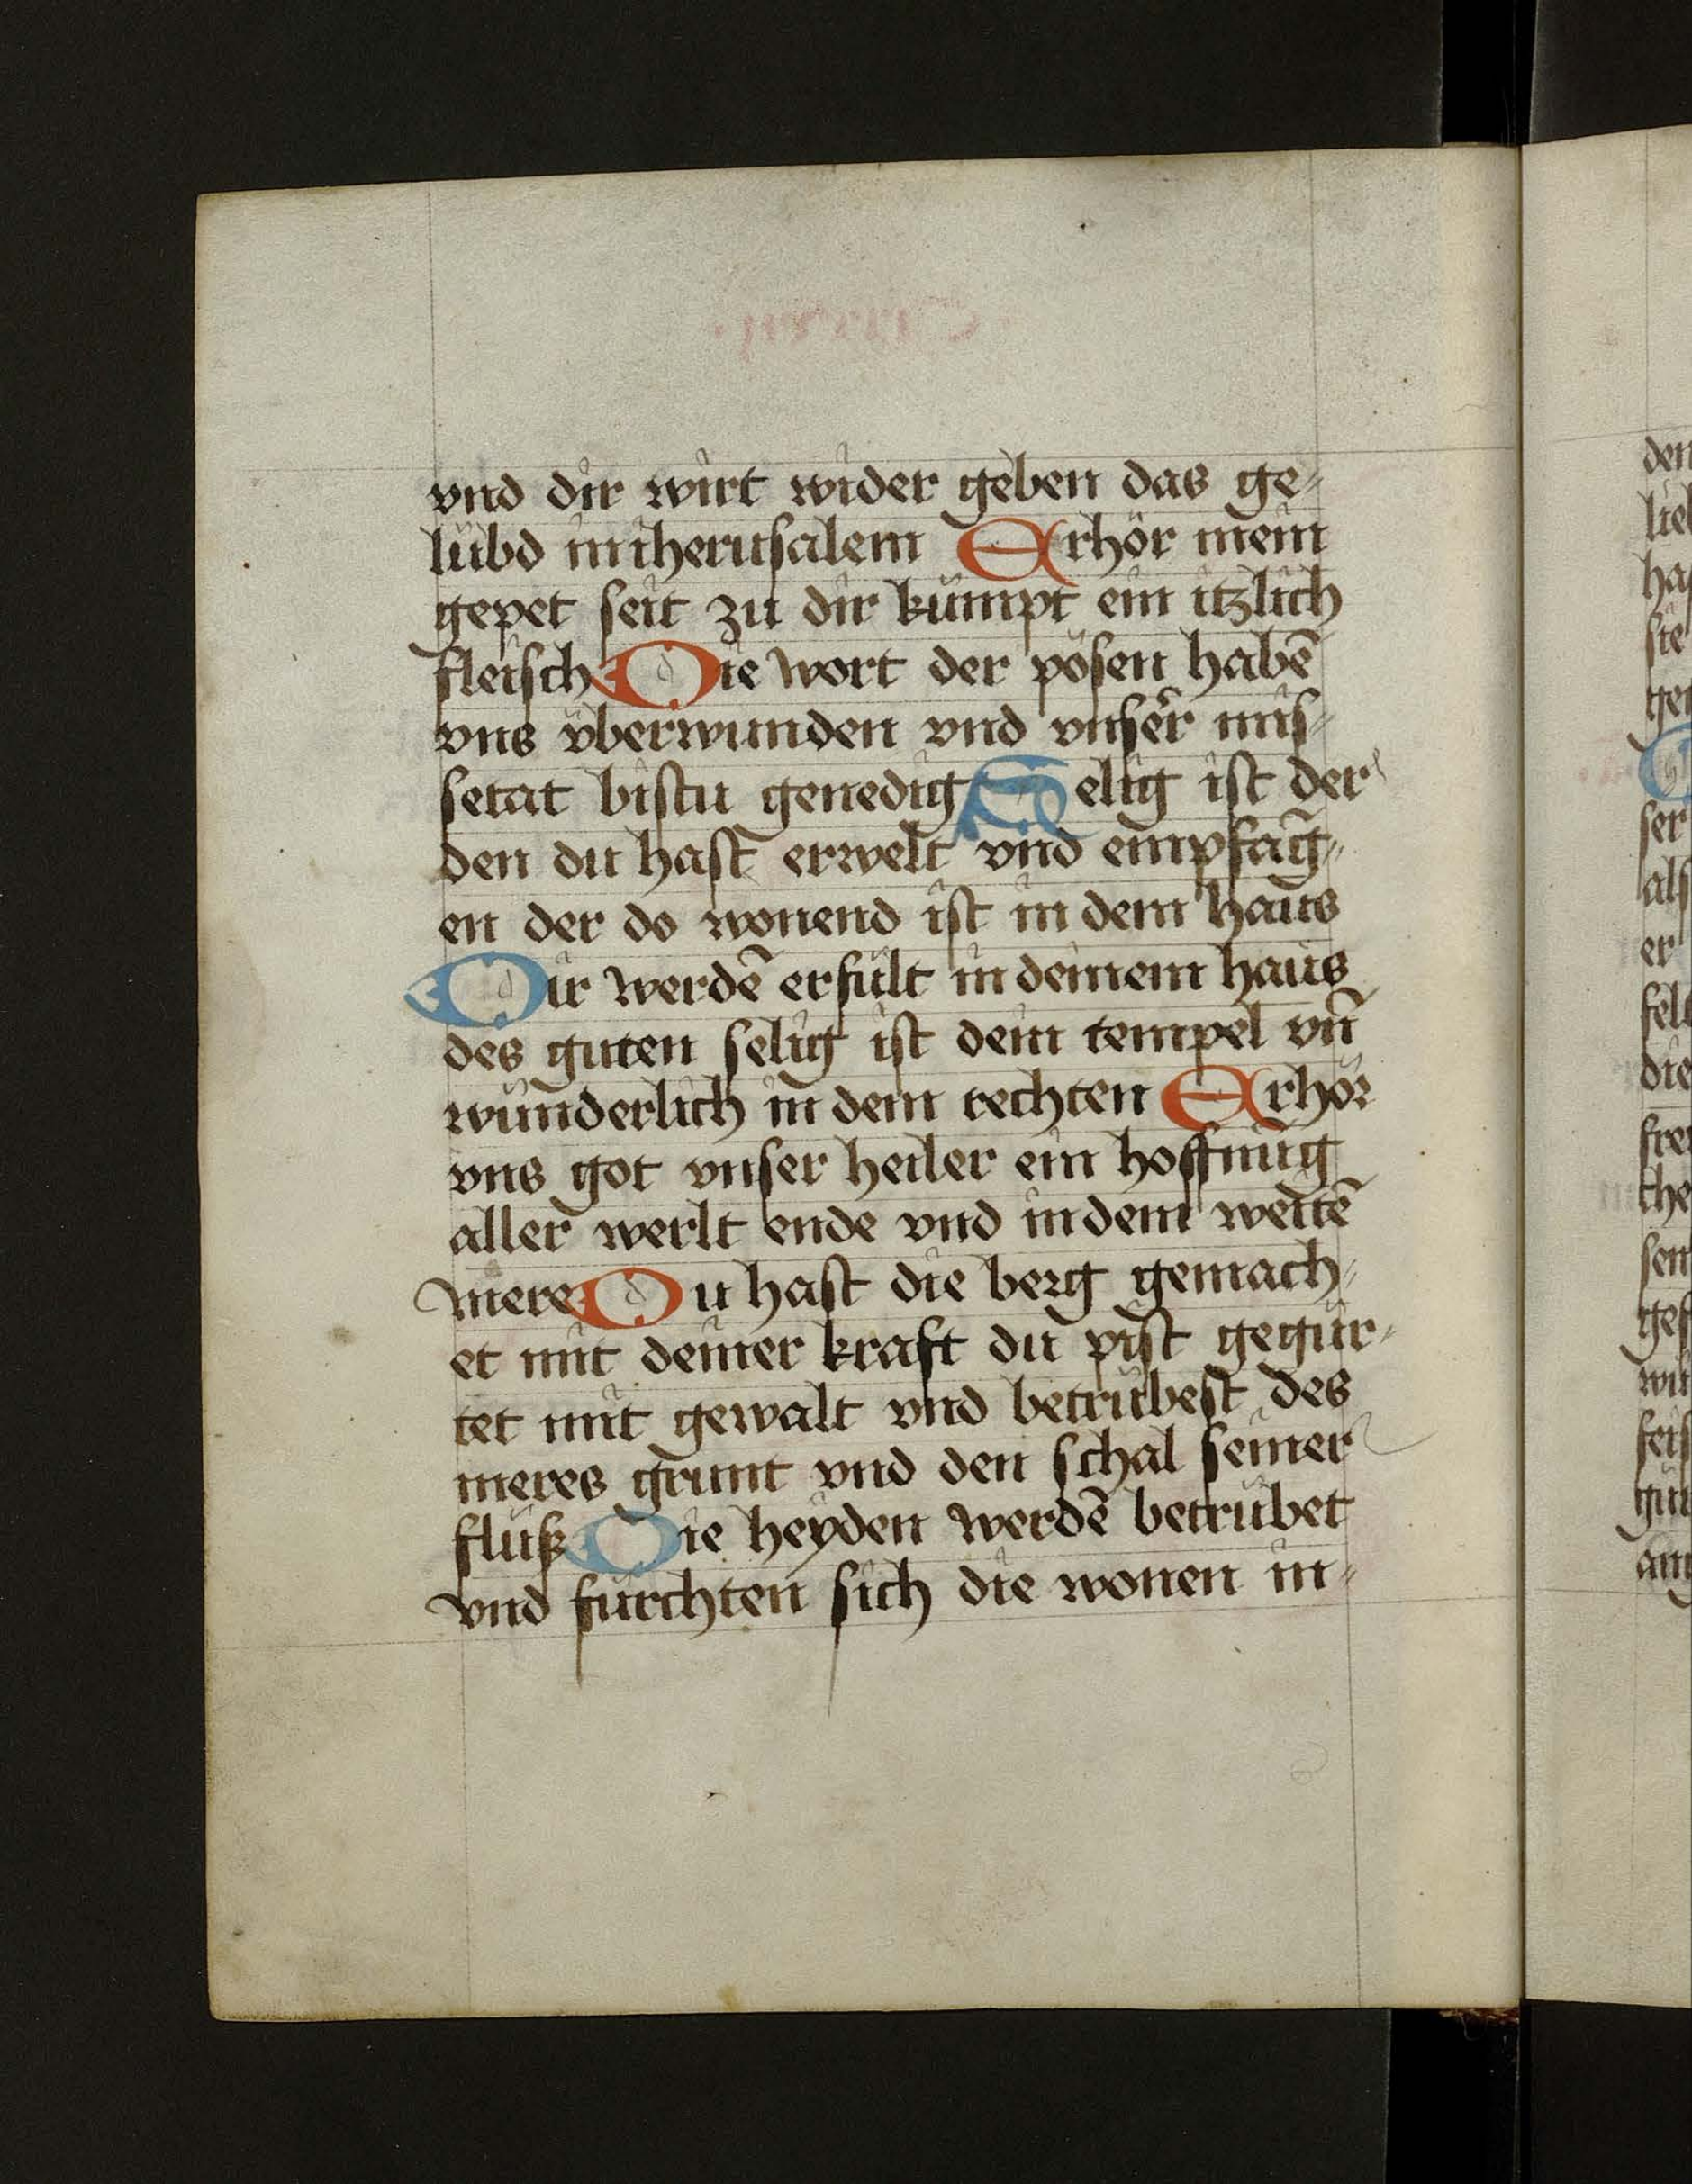 vnd dir wirt wider geben das ge-
lubd in iherusalem Erhör mein
gepet seit zu dir kumpt ein itzlich
fleisch Die wort der pösen habē
vns vberwunden vnd vnser mis-
setat bistu genedig Selig ist der
den du hast erwelt vnd empfāg-
en der do wonend ist in dem haus
Dir werdē erfult in deinem haus
des guten selig ist dein tempel vn̄
wunderlich in dem rechten Erhör
vns got vnser heiler ein hoffnūg
aller werlt ende vnd in dem weitē
mere Du hast die berg gemach-
et mit deiner kraft du pist gegur-
tet mit gewalt vnd betrubest des
meres grunt vnd den schal seiner
fluß Die heyden werdē betrubet
vnd furchten sich die wonen in-